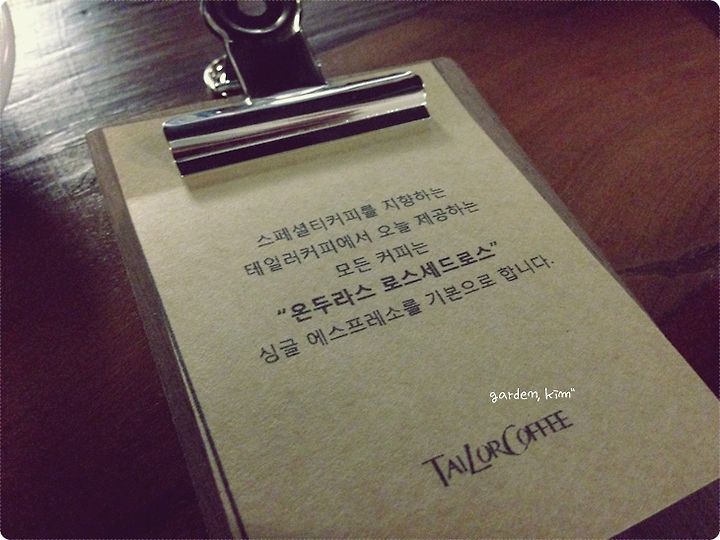 스페셜티커피를 지향하는
테일러커피에서 오늘 제공하는
모든 커피는
“온두라스 로스세드로스”
싱글 에스프레소를 기본으로 합니다.
garden, kim"
TAILORCOFFEE